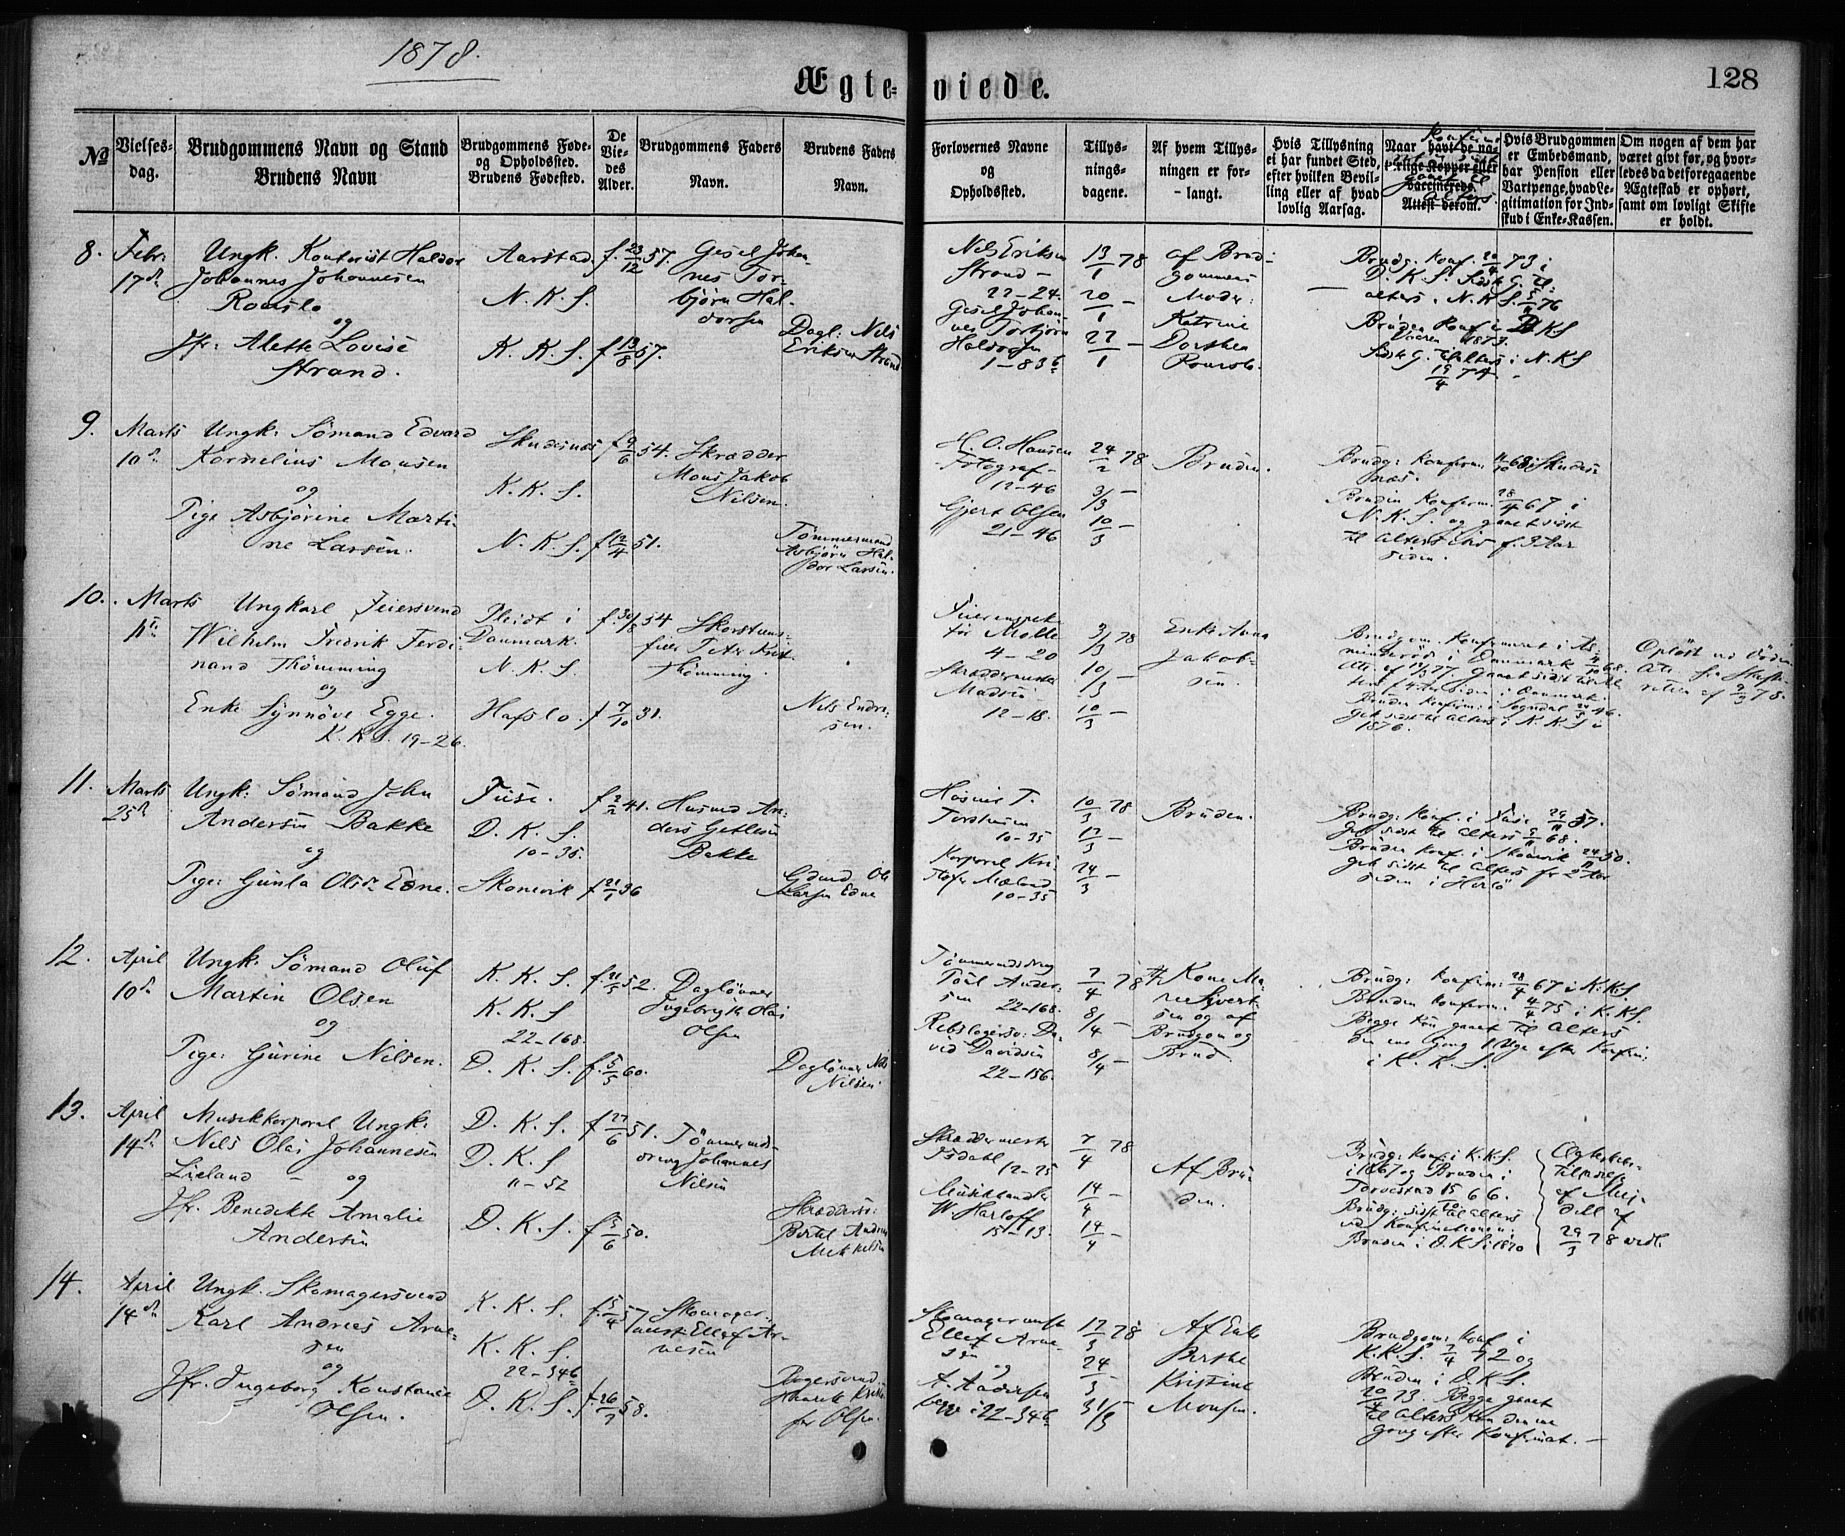 1878.
Ægte-viede.
128
No
Vielses-
dag.
Brudgommens Navn og Stand
Brudens Navn
Brudgommens Føde-
og Opholdssted.
Brudens Fødested.
De
Vie-
des
Alder.
Brudgommens Faders
Navn.
Brudens Faders
Navn.
Forlovernes Navne
og
Opholdssted.
Tillys-
nings-
dagene.
Af hvem Tillys-
ningen er for-
langt.
Hvis Tillysning
ei har fundet Sted,
efter hvilken Bevil-
ling eller af hvad
lovlig Aarsag.
Naar havt de na-
turlige Kopper eller
vaccinerede.
Attest derom.
Hvis Brudgommen
er Embedsmand,
har Pension eller
Vartpenge, hvad Le-
gitimation for Ind-
skud i Enke-Kassen.
Om nogen af dem har
været givt før, og hvor-
ledes da det foregaaende
Ægteskab er ophørt,
samt om lovligt Skifte
er holdt.
8.
Febr.
17de
Ungk. Kontorist Haldor
Johannes Johannesen
Romslo
og
Jfr. Alette Lovise
Strand.
Aarstad.
N. K. S.
K. K. S.
f. 23/12 57.
f. 13/8 57.
Gesel Johan-
nes Tor-
bjørn Hal-
dorsen
Dagl: Nils
Eriksen Strand
Nils Eriksen
Strand -
22-24.
Gesel Johan-
nes Torbjørn
Haldorsen
1-83b
13/1 78
20/1 -
27/1 -
af Brud-
gommens
Moder:
Katrine
Dorthea
Romslo.
Brudg. Konf. 20/4 73 i
D. K. S. Sidst G. til
alters i N. K. S. 5/ 76
Bruden Konf i D K S
Vaaren 1873.
Sidst G. til Alters i N. K S
19/4 74. -
9.
Marts
10de
Ungk: Sømand Edvard
Kornelius Monsen
og
Pige Asbjørine Marti-
ne Larsen.
Skudesnæs
K. K. S.
N. K. S.
f. 9/6 54.
f. 12/4 51.
Skrædder
Mons Jakob
Nilsen.
Tømmermand
Asbjørn Hal-
dor Larsen.
H. O. Hansen
Fotograf -
12-46
Gjert Olsen
21-46
24/2 78
3/3 -
10/3 -
Bruden.
Brudg: Konfirm. 11/10 68 i Skudes-
næs.
Bruden Konfirm. 28/4 67 i
N. K. S. og gaaet sidst
til Alters for 3 Aar
siden.
10.
Marts
11te
Ungkarl Feiersvend
Wilhelm Fredrik Ferdi-
nand Thömming
og
Enke Synnøve Egge.
K. K. S. 19-26.
i
Danmark.
N. K. S.
Hafslo.
f. 30/8 54
f 7/10 31.
Skorstens-
feier Peter Krist.
Thömming.
Nils Endre-
sen.
Feierinspek-
tør Molte
4-20
Skræddermester
Madsen
12-18.
3/3 78
10/3 -
10/3 -
Enke Anna
Jakob-
sen.
Brudgom. Konfirmeret i As-
minderød i Danmark 4/10 68.
Att. af 14/5 77. Gaaet sidst til Al-
ters f. 4 Aar siden i Danmark.
Bruden Konfirm: i Sogndal 24/5 46.
Gik sidst til Alters i K. K. S i
1876.
Opløst ved Døden.
Att. fra Skifte-
retten af 2/3 78.
11.
Marts
25de
Ungk: Sømand John
Andersen Bakke
og
Pige: Gunla Olsdr Edne.
Fuse.
D. K. S.
10-35.
Skonevik
f 2/2 41.
f 21/1 36
Husmd An-
ders Getlesen
Bakke
Gdmd Ole
Larsen Edne
Husmd T.
Torstensen
10-35
Korporal Kri-
stofer Mæland
10-35
10/3 78
17/3 -
24/3 -
Bruden.
Brudg: Konf. i Fuse 29/11 57.
Gik sidst til Alters 9/11 68.
Bruden Konf. i Skonevik 24/11 50.
Gik sidst til Alters for 2 Aar
siden i Herlø
12.
April
10de
Ungk: Sømand Oluf
Martin Olsen
og
Pige: Gurine Nilsen.
K. K. S.
K. K. S.
22-168.
D. K. S.
f. 21/5 52.
f. 5/5 60.
Dagløner
Ingebrigt Olai
Olsen
Dagløner Nils
Nilsen.
Tømmermdsdreng
Poul Ander-
sen 22-168.
Rebslagersv: Da-
vid Davidsen
22-156.
7/4 78
8/4 -
8/4 -
Af Kone Ma-
ren Sivert-
sen og af
Brudgom og
Brud
Brudg: Konfirm: 28/4 67 i K. K. S.
Bruden Konfirm: 4/4 75 i K. KS.
Begge Kun gaaet til Alters
den ene Gang 1 Uge efter Konfirm:
i K. K. S.
13.
April
14de
Musikkorporal Ungk.
Nils Olai Johannesen
Lieland - og
Jfr. Benedikte Amalie
Andersen
D. K. S.
D. K. S
11-52
D. K. S.
f 27/6 51.
f 5/6 50.
Tømmermds-
dreng Johannes
Nilsen
Skræddersv:
Bertel Andreas
Mikkelsen
Skræddermester
Isdahl
12-25
Musikhandler
W. Harloff
15-13.
7/4 78
14/4 -
14/4 -
Af Bru-
den.
Brudg: Konf i K. K. S.
i 1867 og Bruden i
Torvestad 15/10 66.
Brudg: sidst til Alters
ved Konfirmationen:
Bruden i D. K. S. i 1870
Ægteskabs-
Tilladelse
af
af
29/3 78 vedl.
14.
April
14de
Ungk. Skomagersvend
Karl Andreas Arne-
sen
og
Jfr. Ingeborg Konstance
Olsen.
K. K. S.
K. K. S.
22-346
D. K. S.
f. 5/4 57
f. 26/7 58.
Skomager-
mester Ellef Ar-
nesen
Bagersvend
Henrik Kristo-
fer Olsen.
Skomagermester
Ellef Arne-
sen
og
A. Andersen
22-346
17/3 78
24/3 -
31/3
Af Enke
Berthe
Kristine
Monsen.
Brudgom: Konf i
K. K. S. 7/4 72 og
Bruden i D. K. S.
20/4 73. Begge gaaet
til Alters kun den ene
Gang efter Konfirmat. -